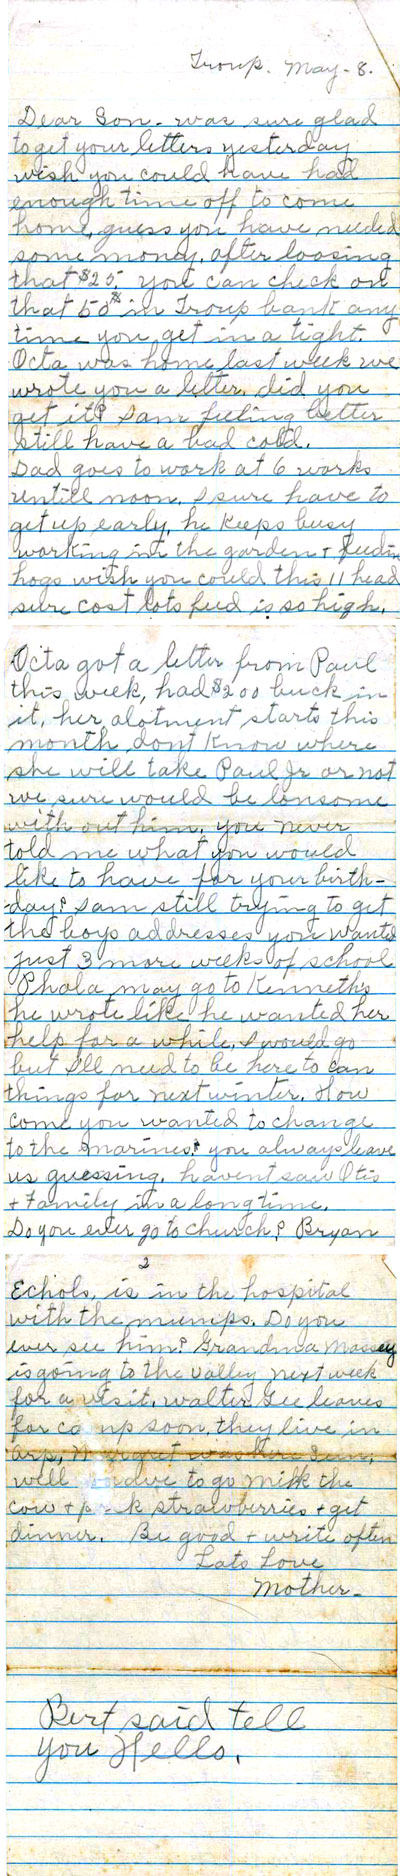 Troup. May-8.
Dear Son- was sure glad
to get your letters yesterday
wish you could have had
enough time off to come
home, guess you have needed
some money, after loosing
that $25, you can check on
that 50 in Troup bank any
time you get in a tight.
Octa was home last week we
wrote you a letter, did you
get it? Iam feeling better
still have a bad cold.
Dad goes to work at 6 works
untill noon, I sure have to
get up early, he keeps busy
working in the garden + feedin
hogs wish you could this 11 head
sure cost lots feed is so high.
Octa got a letter from Paul
this week, had $200 buck in
it, her alotment starts this
month, dont know where
she will take Paul Jr or not
we sure would be lonsome
with out him, you never
told me what you would
like to have for your birth-
day? Iam still trying to get
the boys addresses you wanted
just 3 more weeks of school
Phala may go to Kenneths
he wrote like he wanted her
help for a while, I would go
but Ill need to be here to can
things for next winter. How
come you wanted to change
to the marines? you always leave
us guessing, havent saw Otis
+ Family in a long time.
Do you ever go to church? Bryan
2
Echols, is in the hospital
with the mumps. Do you
ever see him? Grandma Massey
is going to the valley next week
for a visit, walter Gee leaves
for camp soon, they live in
arp, was here
well to go milk the
cow + strawberries + get
dinner. Be good + write often
Lots Love
Mother-
Bert said tell
you Hello.